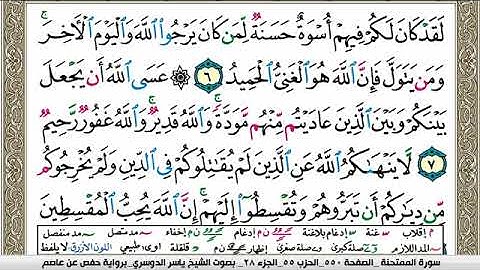 لَقَدْ كَانَ لَكُمْ فِيهِمْ أُسْوَةٌ حَسَنَةٌ لِّمَن كَانَ يَرْجُوا۟ ٱللَّهَ وَٱلْيَوْمَ ٱلْـَٔاخِرَ ۚ
وَمَن يَتَوَلَّ فَإِنَّ ٱللَّهَ هُوَ ٱلْغَنِىُّ ٱلْحَمِيدُ ٦ ۞ عَسَى ٱللَّهُ أَن يَجْعَلَ
بَيْنَكُمْ وَبَيْنَ ٱلَّذِينَ عَادَيْتُم مِّنْهُم مَّوَدَّةً ۚ وَٱللَّهُ قَدِيرٌ ۚ وَٱللَّهُ غَفُورٌ رَّحِيمٌ
٧ لَّا يَنْهَىٰكُمُ ٱللَّهُ عَنِ ٱلَّذِينَ لَمْ يُقَـٰتِلُوكُمْ فِى ٱلدِّينِ وَلَمْ يُخْرِجُوكُم
مِّن دِيَـٰرِكُمْ أَن تَبَرُّوهُمْ وَتُقْسِطُوٓا۟ إِلَيْهِمْ ۚ إِنَّ ٱللَّهَ يُحِبُّ ٱلْمُقْسِطِينَ
م إقلاب غنة إدغام بلاغنة إدغام إخفاء مد متصل مد منفصل
مد اللازم صلة كبرى وصلة صغرى إظهار قلقلة طبيعي اللون الأزرق لا يلفظ
سورة الممتحنة_ الصفحة ٥٥٠_ الحزب ٥٥_ الجزء ٢٨_ بصوت الشيخ ياسر الدوسري_ برواية حفص عن عاصم